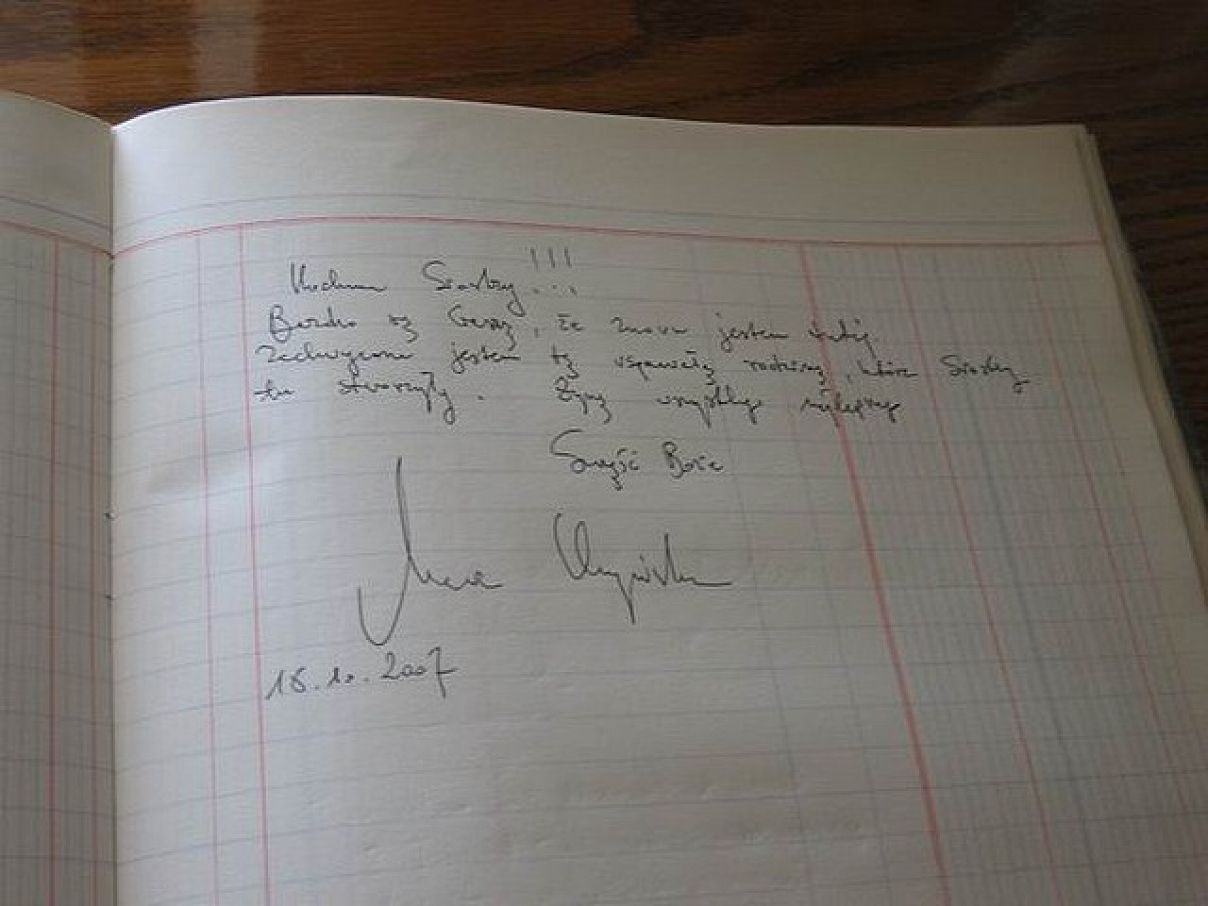 Kochane Siostry!!!
Bardzo się cieszę, że znowu jestem tutaj.
Zachwycona jestem tą wspaniałą rodziną, które Siostry
tu stworzyły. Życzę wszystkiego najlepszego
Szczęść Boże
18.10.2007